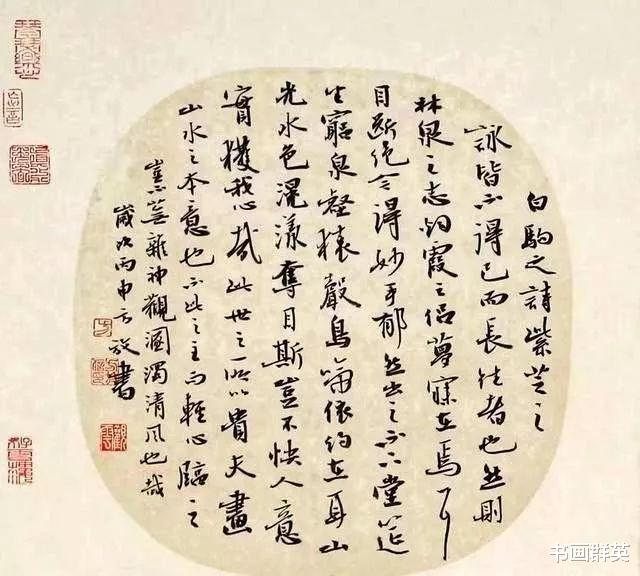 白駒之詩紫芝之
詠皆不得已而長往者也然則
林泉之志烟霞之侶夢寐在焉耳
目斷絕今得妙手郁然出之不下堂筵
坐窮泉壑猿聲鳥啼依約在耳山
光水色滉漾奪目斯豈不快人意
實獲我心哉此世之所以貴夫畫
山水之本意也不此之主而輕心臨之
豈不蕪雜神觀溷濁清風也哉
歲次丙申方放書
书画群英